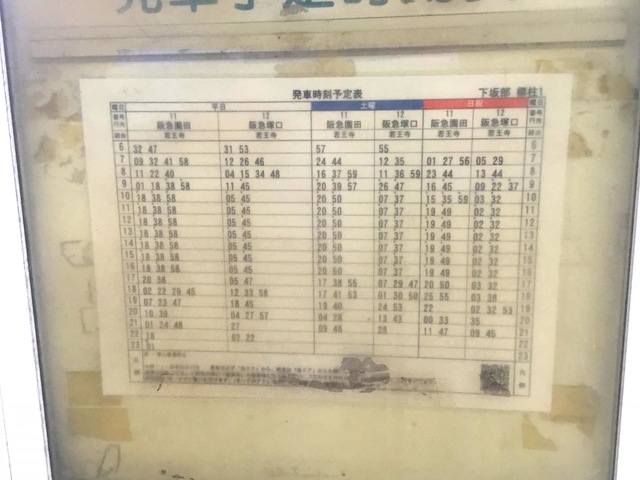 発車時刻予定表 下坂部 標柱1
曜日 平日 土曜 日祝 曜日
番号 11 12 11 12 11 12 番号
行先 阪急園田 阪急塚口 阪急園田 阪急塚口 阪急園田 阪急塚口 行先
経由 若王寺 若王寺 若王寺 若王寺 若王寺 若王寺 経由
6 32 47 31 53 57 55 6
7 09 32 41 58 12 26 46 24 44 12 35 01 27 56 05 29 7
8 11 22 40 04 15 34 48 16 37 59 11 36 59 23 44 13 44 8
9 01 18 38 58 11 45 20 39 57 26 47 16 45 09 22 37 9
10 18 38 58 05 45 20 50 07 37 15 35 59 03 32 10
11 18 38 58 05 45 20 50 07 37 19 49 02 32 11
12 18 38 58 05 45 20 50 07 37 19 49 02 32 12
13 18 38 58 05 45 20 50 07 37 19 49 02 32 13
14 18 38 58 05 45 20 50 07 37 19 49 02 32 14
15 18 38 58 05 45 20 50 07 37 19 49 02 32 15
16 18 38 58 05 45 20 50 07 37 19 49 02 32 16
17 20 38 05 47 17 38 55 07 29 47 20 50 03 32 17
18 02 22 29 45 12 33 58 17 41 53 01 30 50 25 55 03 38 18
19 07 23 47 18 45 19 40 24 53 22 02 32 53 19
20 10 39 04 27 57 04 28 13 43 00 33 35 20
21 01 24 48 27 09 48 28 11 47 09 45 21
22 18 02 22 22
23 01 23